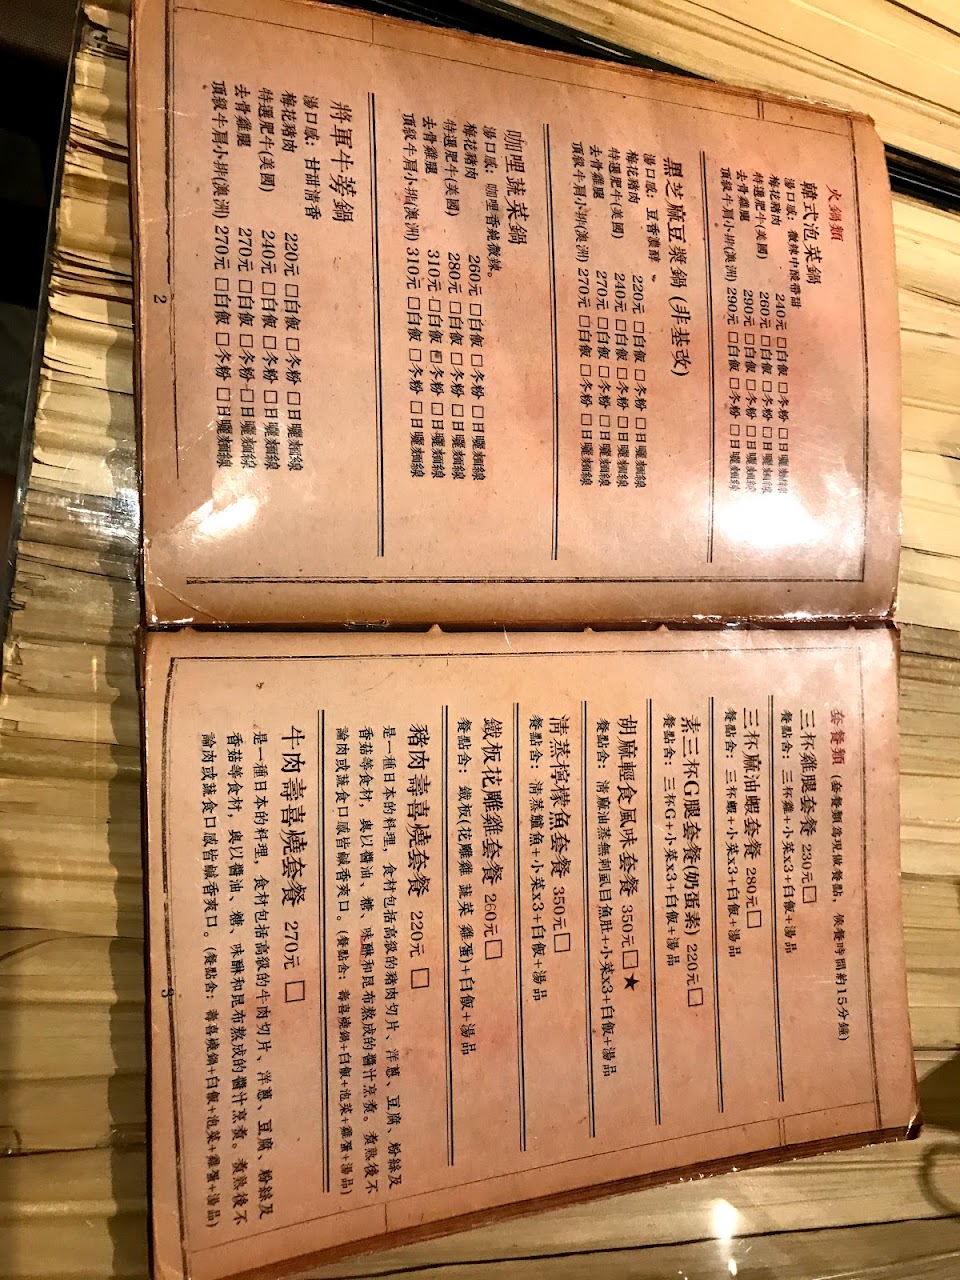 火鍋類
韓式泡菜鍋
湯口感：微辣中酸帶甜
梅花豬肉 240元 □白飯 □冬粉 □日曬麵線
特選肥牛(美國) 260元 □白飯 □冬粉 □日曬麵線
去骨雞腿 290元 □白飯 □冬粉 □日曬麵線
頂級牛肩小排(澳洲) 290元 □白飯 □冬粉 □日曬麵線
黑芝麻豆漿鍋 (非基改)
湯口感：豆香濃醇
梅花豬肉 220元 □白飯 □冬粉 □日曬麵線
特選肥牛(美國) 240元 □白飯 □冬粉 □日曬麵線
去骨雞腿 270元 □白飯 □冬粉 □日曬麵線
頂級牛肩小排(澳洲) 270元 □白飯 □冬粉 □日曬麵線
咖哩蔬菜鍋
湯口感：咖哩香純微辣。
梅花豬肉 260元 □白飯 □冬粉 □日曬麵線
特選肥牛(美國) 280元 □白飯 □冬粉 □日曬麵線
去骨雞腿 310元 □白飯 □冬粉 □日曬麵線
頂級牛肩小排(澳洲) 310元 □白飯 □冬粉 □日曬麵線
將軍牛蒡鍋
湯口感：甘甜清香
梅花豬肉 220元 □白飯 □冬粉 □日曬麵線
特選肥牛(美國) 240元 □白飯 □冬粉 □日曬麵線
去骨雞腿 270元 □白飯 □冬粉 □日曬麵線
頂級牛肩小排(澳洲) 270元 □白飯 □冬粉 □日曬麵線
2
套餐類 (套餐類為現做餐點，候餐時間約15分鐘)
三杯雞腿套餐 230元□
餐點含：三杯雞+小菜x3+白飯+湯品
三杯麻油蝦套餐 280元□
餐點含：三杯蝦+小菜x3+白飯+湯品
素三杯G腿套餐(奶蛋素) 220元□
餐點含：三杯G+小菜x3+白飯+湯品
胡麻輕食風味套餐 350元□★
餐點含：清麻油蒸無刺虱目魚肚+小菜x3+白飯+湯品
清蒸檸檬魚套餐 350元□
餐點含：清蒸鱸魚+小菜x3+白飯+湯品
鐵板花雕雞套餐 260元□
餐點含：鐵板花雕雞 蔬菜 雞蛋)+白飯+湯品
豬肉壽喜燒套餐 220元 □
是一種日本的料理，食材包括高級的豬肉切片、洋蔥、豆腐、粉絲及
香菇等食材，與以醬油、糖、味醂和昆布熬成的醬汁烹煮。煮熟後不
論肉或蔬食口感皆鹹香爽口。(餐點含：壽喜燒鍋+白飯+泡菜+雞蛋+湯品)
牛肉壽喜燒套餐 270元 □
是一種日本的料理，食材包括高級的牛肉切片、洋蔥、豆腐、粉絲及
香菇等食材，與以醬油、糖、味醂和昆布熬成的醬汁烹煮。煮熟後不
論肉或蔬食口感皆鹹香爽口。(餐點含：壽喜燒鍋+白飯+泡菜+雞蛋+湯品)
3